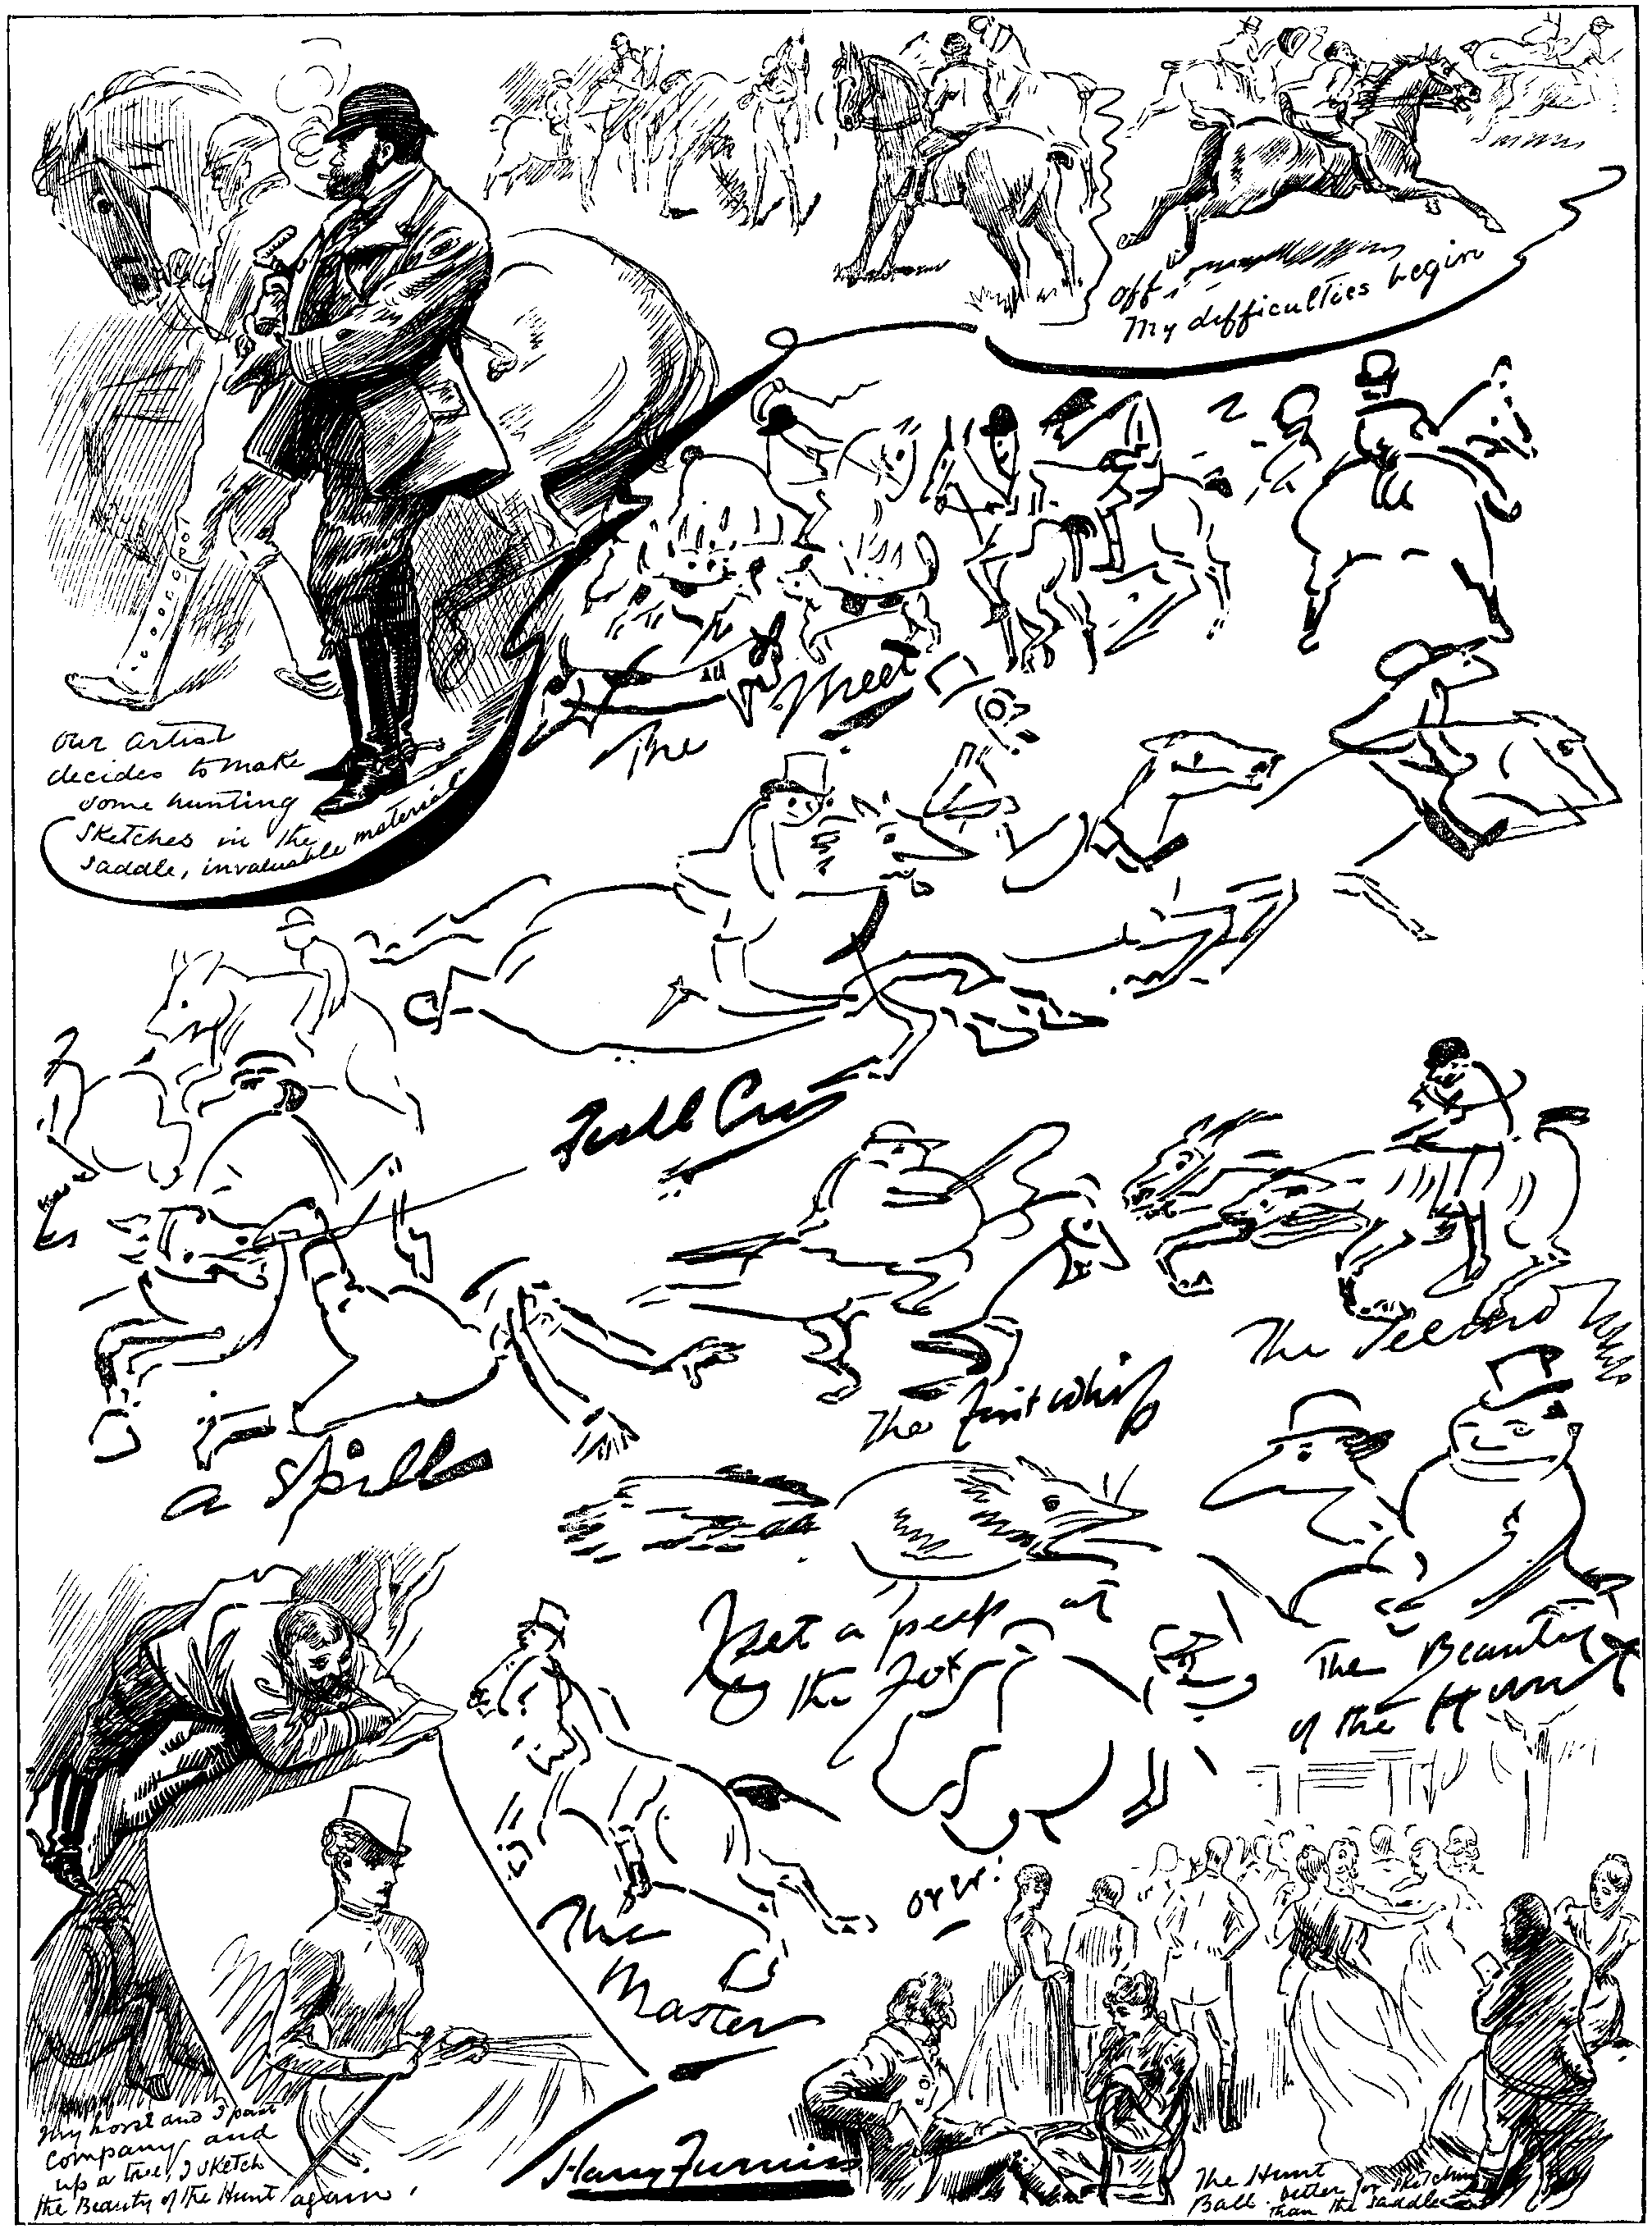 off
My difficulties begin
Our Artist
decides to make
some hunting
sketches in the
saddle, invaluable material
The Meet
Full Cry
The Second
The First Whip
a Spill
Get a peep at
the Fox
The Beauty
of the Hunt
over!
The
Master
My horse and I part
company and
up a tree, I sketch
the Beauty of the Hunt again!
Harry Furniss
The Hunt
Ball. better for sketching
than the saddle